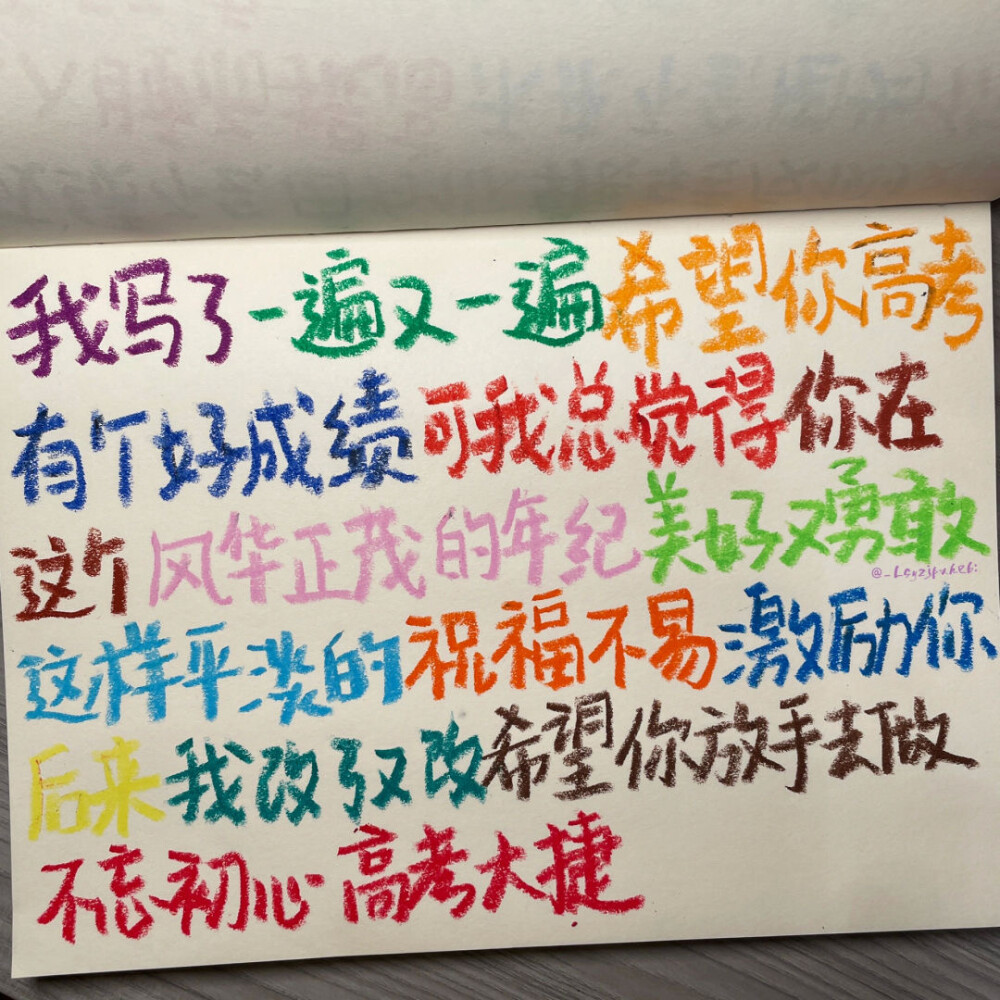 我写了一遍又一遍希望你高考
有个好成绩可我总觉得你在
这个风华正茂的年纪美好又勇敢
这样平淡的祝福不易激励你
后来我改了又改希望你放手去做
不忘初心 高考大捷